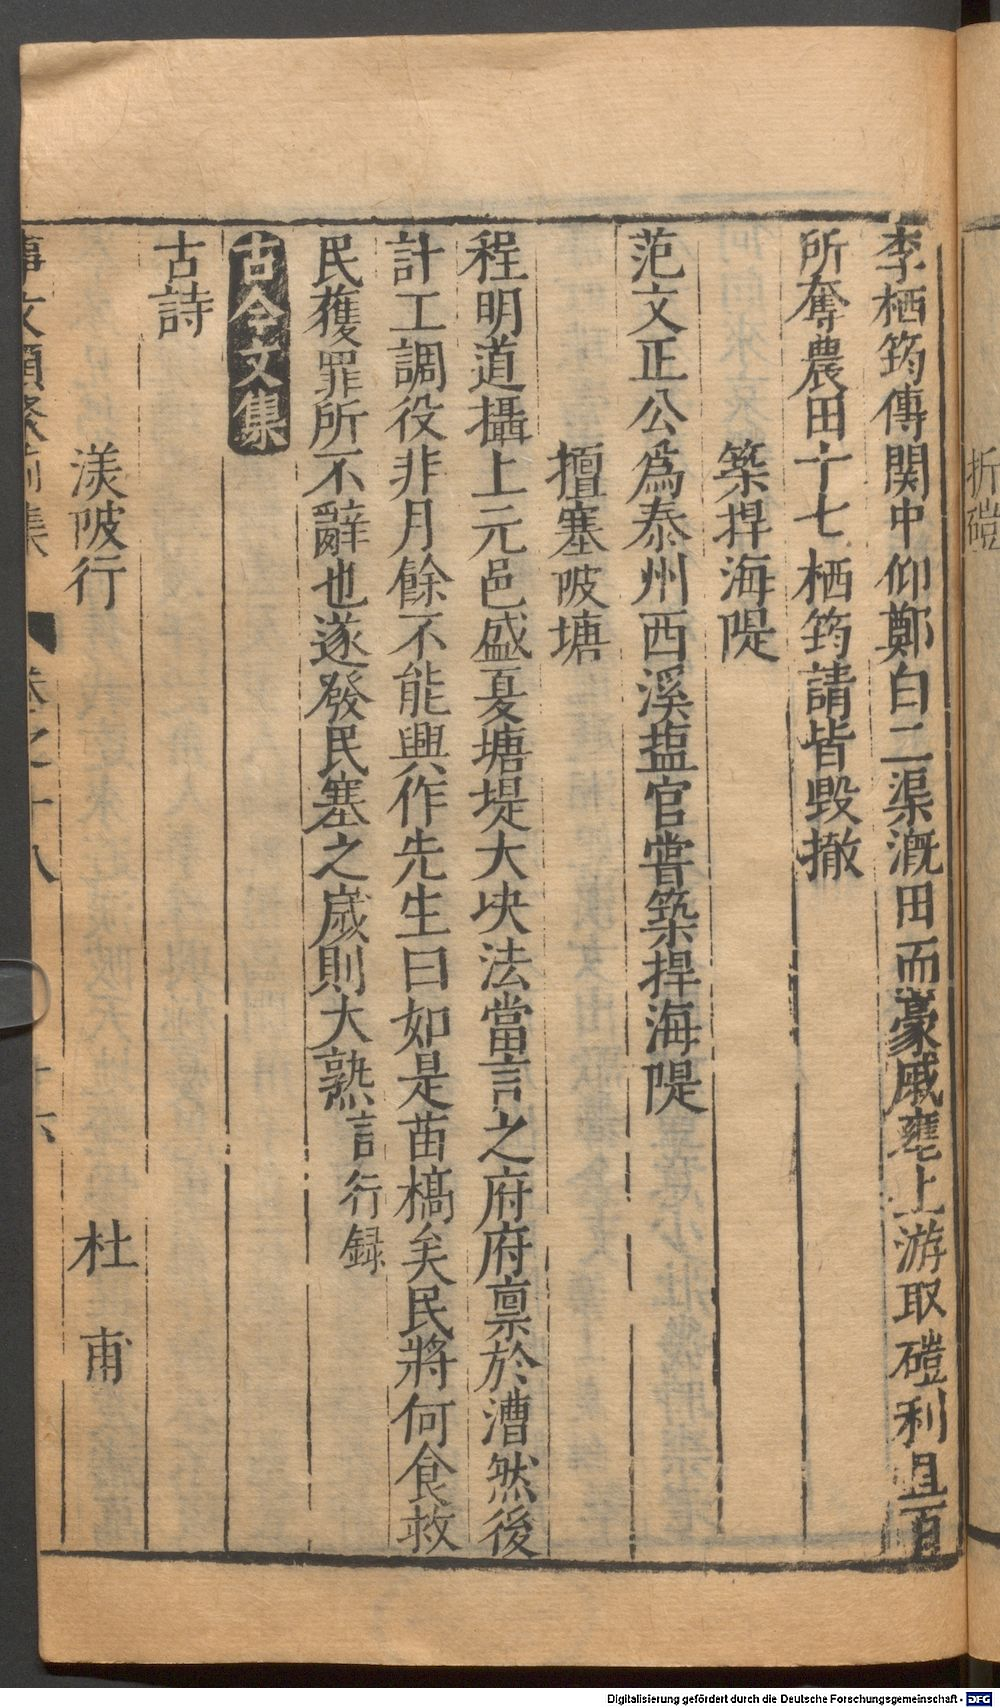 折磑
李栖筠傳関中仰鄭白二渠漑田而豪戚壅上游取磑利且百
所奪農田十七栖筠請皆毀撤
築捍海隄
范文正公爲泰州西溪塩官嘗築捍海隄
擅塞陂塘
程明道攝上元邑盛夏塘堤大决法當言之府府禀於漕然後
計工調役非月餘不能興作先生曰如是苗槁矣民將何食救
民獲罪所不辭也遂發民塞之歲則大熟言行録
古今文集
古詩
渼陂行 杜甫
事文類聚前集 卷之十八 十六
Digitalisierung gefördert durch die Deutsche Forschungsgemeinschaft - DFG